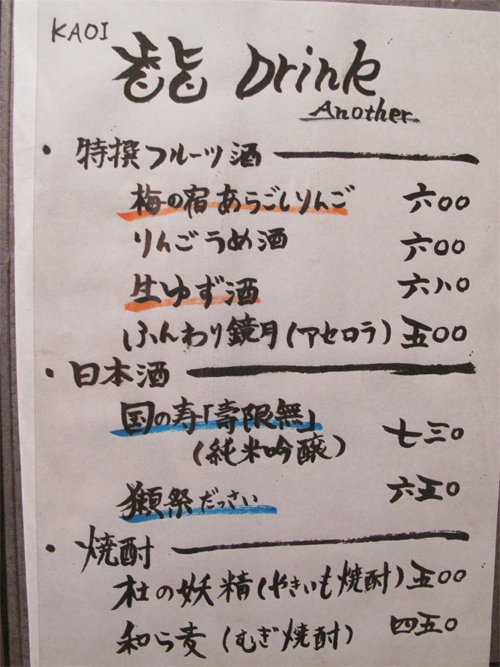 KAOI
Drink
Another
・特撰フルーツ酒
梅の宿あらごしりんご 六〇〇
りんごうめ酒 六〇〇
生ゆず酒 六八〇
ふんわり鏡月(アセロラ) 五〇〇
・日本酒
国の寿「壽限無」
(純米吟醸) 七三〇
獺祭だっさい 六五〇
・焼酎
杜の妖精(やきいも焼酎) 五〇〇
和ら麦(むぎ焼酎) 四五〇